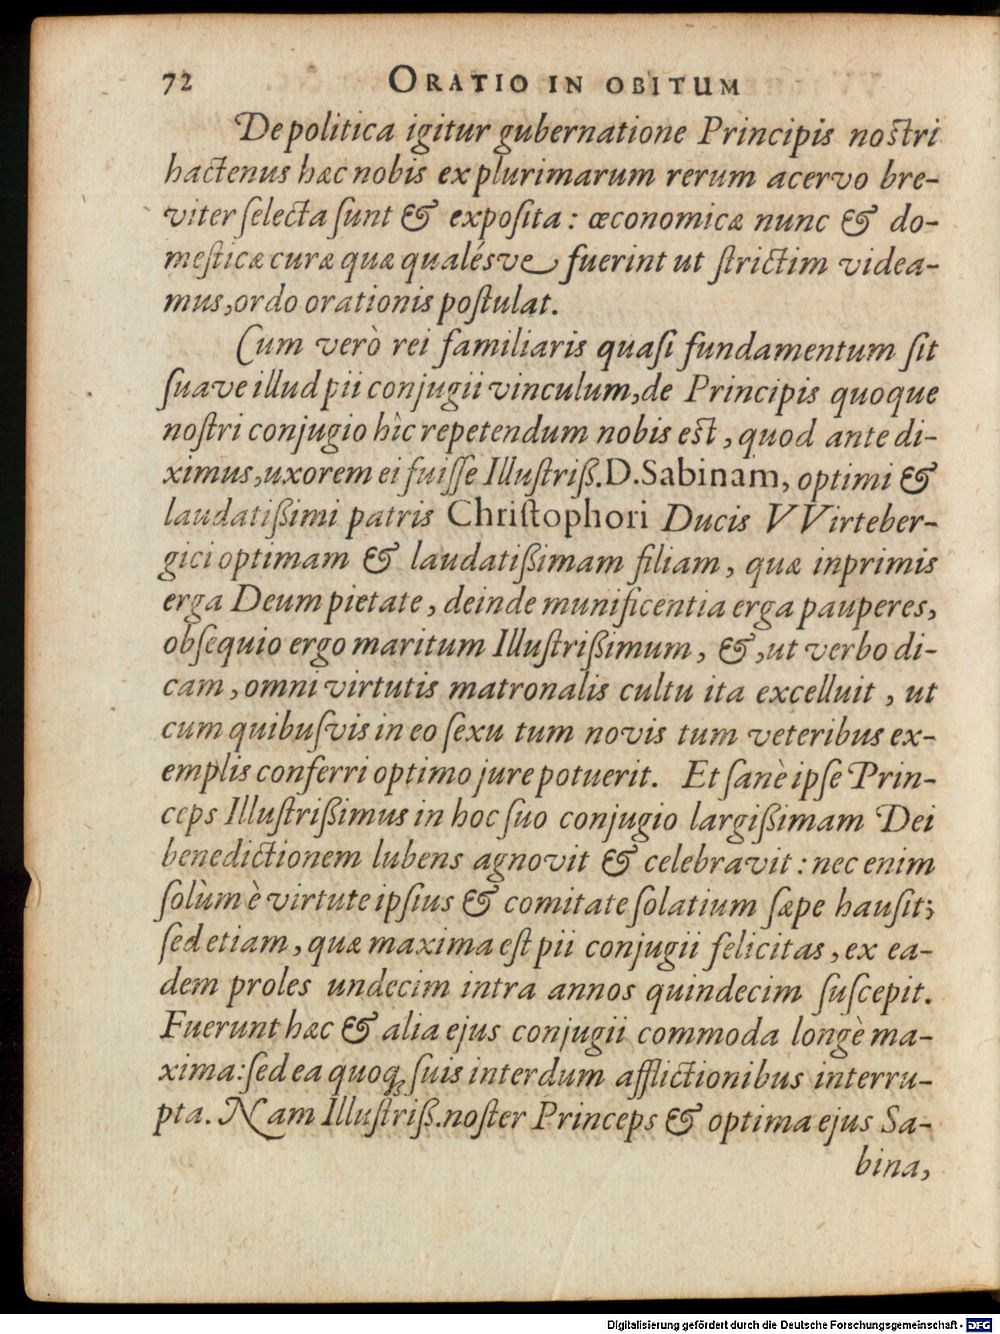 72 ORATIO IN OBITUM
De politica igitur gubernatione Principis nostri
hactenus hæc nobis ex plurimarum rerum acervo bre-
viter ſelecta ſunt & expoſita: œconomicæ nunc & do-
meſticæ curæ quæ qualésve fuerint ut ſtrictim videa-
mus, ordo orationis poſtulat.
Cum verò rei familiaris quaſi fundamentum ſit
ſuave illud pii conjugii vinculum, de Principis quoque
noſtri conjugio hìc repetendum nobis est, quod ante di-
ximus, uxorem ei fuiſſe Illuſtriß. D. Sabinam, optimi &
laudatißimi patris Chriſtophori Ducis VVirteber-
gici optimam & laudatißimam filiam, quæ inprimis
erga Deum pietate, deinde munificentia erga pauperes,
obſequio ergo maritum Illuſtrißimum, &, ut verbo di-
cam, omni virtutis matronalis cultu ita excelluit, ut
cum quibuſvis in eo ſexu tum novis tum veteribus ex-
emplis conferri optimo jure potuerit. Et ſanè ipſe Prin-
ceps Illuſtrißimus in hoc ſuo conjugio largißimam Dei
benedictionem lubens agnovit & celebravit: nec enim
ſolùm è virtute ipſius & comitate ſolatium ſæpe hauſit;
ſed etiam, quæ maxima eſt pii conjugii felicitas, ex ea-
dem proles undecim intra annos quindecim ſuſcepit.
Fuerunt hæc & alia ejus conjugii commoda longè ma-
xima: ſed ea quoq; ſuis interdum afflictionibus interru-
pta. Nam Illuſtriß. noſter Princeps & optima ejus Sa-
bina,
Digitalisierung gefördert durch die Deutsche Forschungsgemeinschaft - DFG